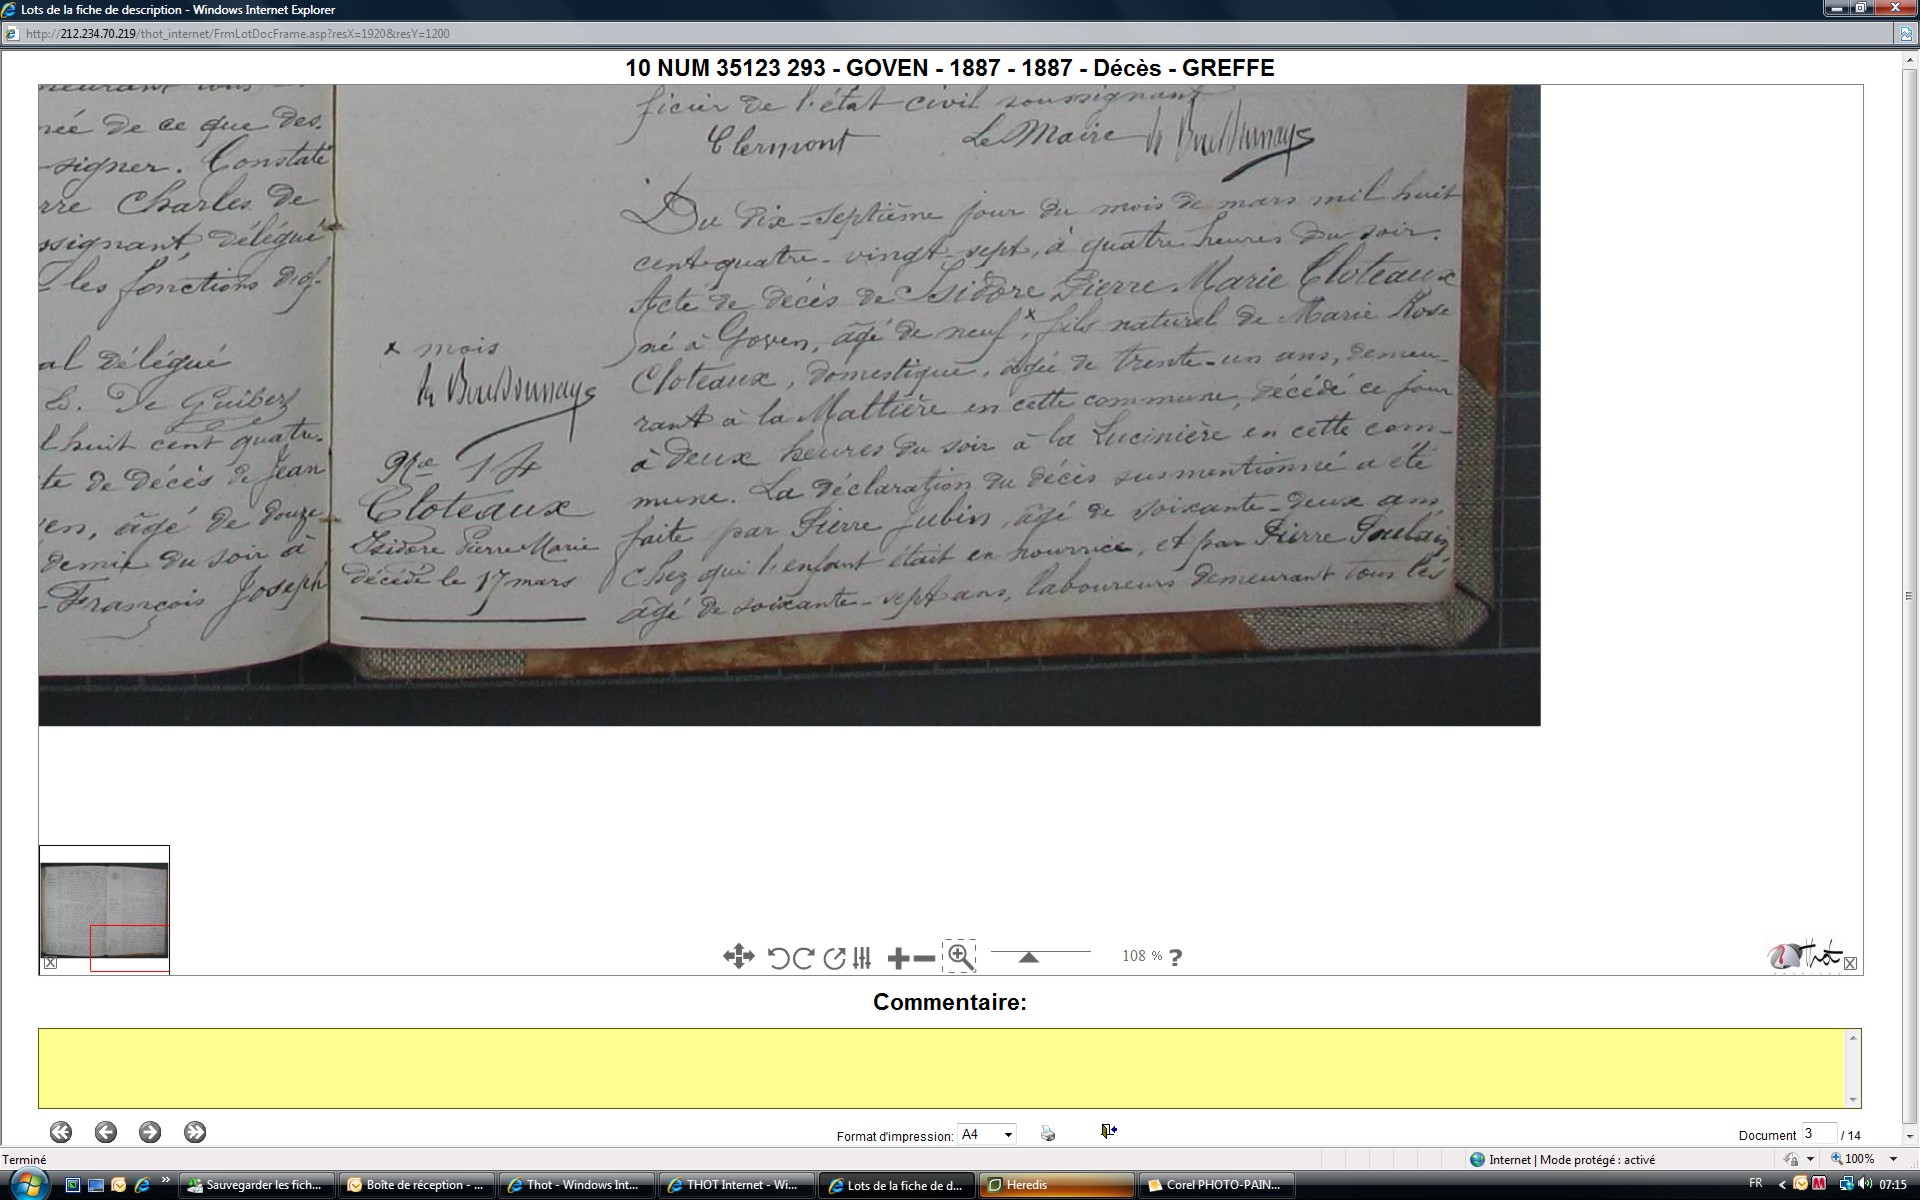 Lots de la fiche de description - Windows Internet Explorer
http://212.234.70.219/thot_internet/FrmLotDocFrame.asp?resX=1920&resY=1200
10 NUM 35123 293 - GOVEN - 1887 - 1887 - Décès - GREFFE
née de ce que des-
signer. Constaté
rre Charles de
ssignant, délégué
les fonctions d'of-
al délégué
De Guibert
l huit cent quatre-
te de décès de Jean
en, âgé de douze
demie du soir à
François Joseph
x mois
de Bourdonnaye
Nre 14
Cloteaux
Isidore Pierre Marie
décédé le 17 mars
ficier de l'état civil soussignant
Clermont Le Maire de Bourdonnaye
Du dix-septième jour du mois de mars mil huit
cent quatre-vingt-sept, à quatre heures du soir.
Acte de décès de Isidore Pierre Marie Cloteaux
né à Goven, âgé de neuf x, fils naturel de Marie Rose
Cloteaux, domestique, âgée de trente-un ans, demeu-
rant à la Mattière en cette commune, décédé ce jour
à deux heures du soir à la Lucinière en cette com-
mune. La déclaration du décès susmentionné a été
faite par Pierre Jubin, âgé de soixante-deux ans
chez qui l'enfant était en nourrice, et par Pierre
âgé de soixante-sept ans, laboureurs demeurant tous les
108 % ?
Thot
Commentaire:
Format d'impression: A4
Document 3 / 14
Terminé
Internet | Mode protégé : activé
100%
Sauvegarder les fich...
Boîte de réception - ...
Thot - Windows Int...
THOT Internet - Wi...
Lots de la fiche de d...
Heredis
Corel PHOTO-PAIN...
FR
07:15